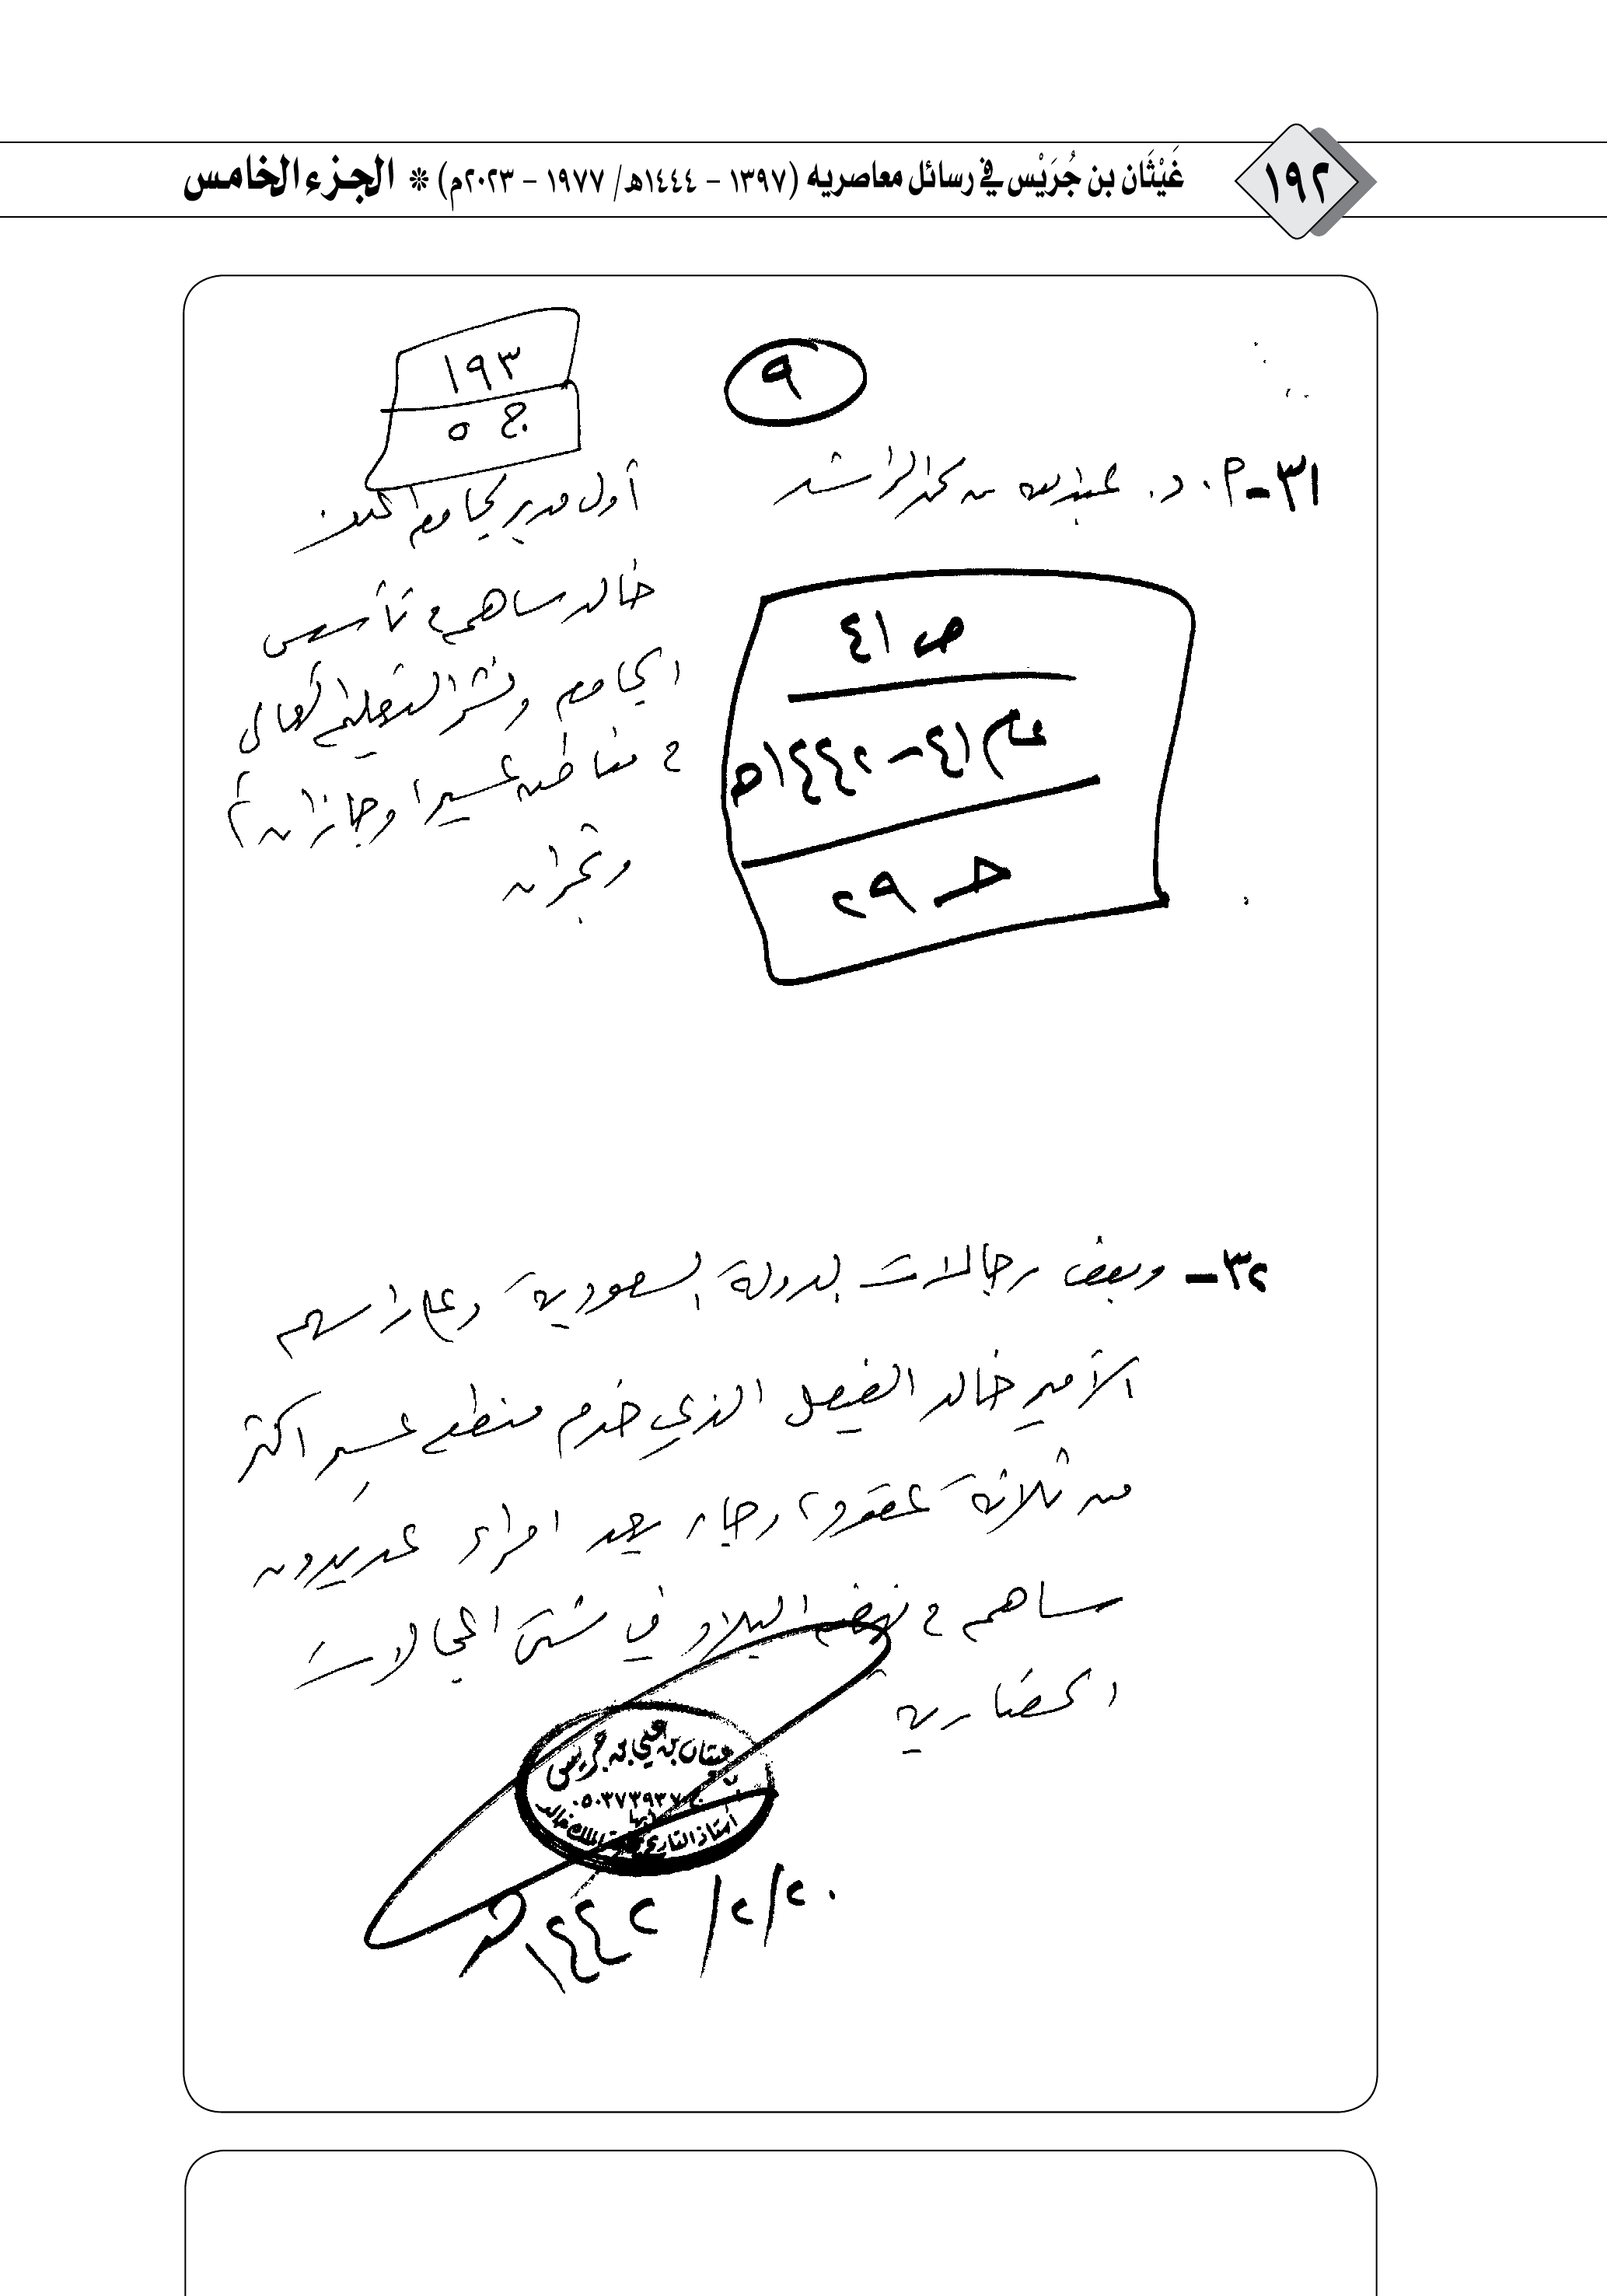 ١٩٢
غَيْثَان بن جُرَيْس في رسائل معاصريه (١٣٩٧ - ١٤٤٤هـ/ ١٩٧٧ - ٢٠٢٣م) * الجزء الخامس
١٩٣
ج ٥
٩
٣١- م. د. عبدالله بن محمد الراشد
أول مدير لجامعة الملك
خالد ساهم في تأسيس
الجامعة ونشر التعليم العالي
في مناطق عسير، وجازان،
ونجران
ص ٤١
عام ٤١ - ١٤٤٢هـ
حـ ٢٩
٣٢- وبعض رجالات الدولة السعودية وعلى رأسهم
الأمير خالد الفيصل الذي خدم منطقة عسير اكثر
من ثلاثة عقود، وجاء بعد امراء عديدون
ساهم في نهضة البلاد في شتى المجالات
الحضارية
غيثان بن علي بن جريس
أستاذ التاريخ الملك خالد
أبها
٢٠/٢/١٤٤٢هـ